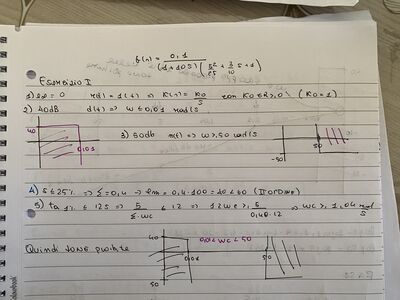 G(s) = 0,1 / (1+10s)(s²/25 + 2/10 s + 1)
Esercizio I
1) e∞ = 0 r(t) = 1(t) => K(s) = K0/s con K0 ∈ R > 0 \ (K0=1)
2) 40dB d(t) => w ≤ 0,01 rad/s
40
0,01
3) 50dB n(t) => w ≥ 50 rad/s
50
-50
4) s ≤ 25% => Σ = 0,4 => φm = 0,4·100 = 40 < 60 (II ORDINE)
5) ta 1% ≤ 12s => 5/Σ·wc ≤ 12 => 12wc ≥ 5/0,40·12 => wc ≥ 1,04 rad/s
Quindi ZONE proibite
40
0,01
0,01 < wc < 50
50
50